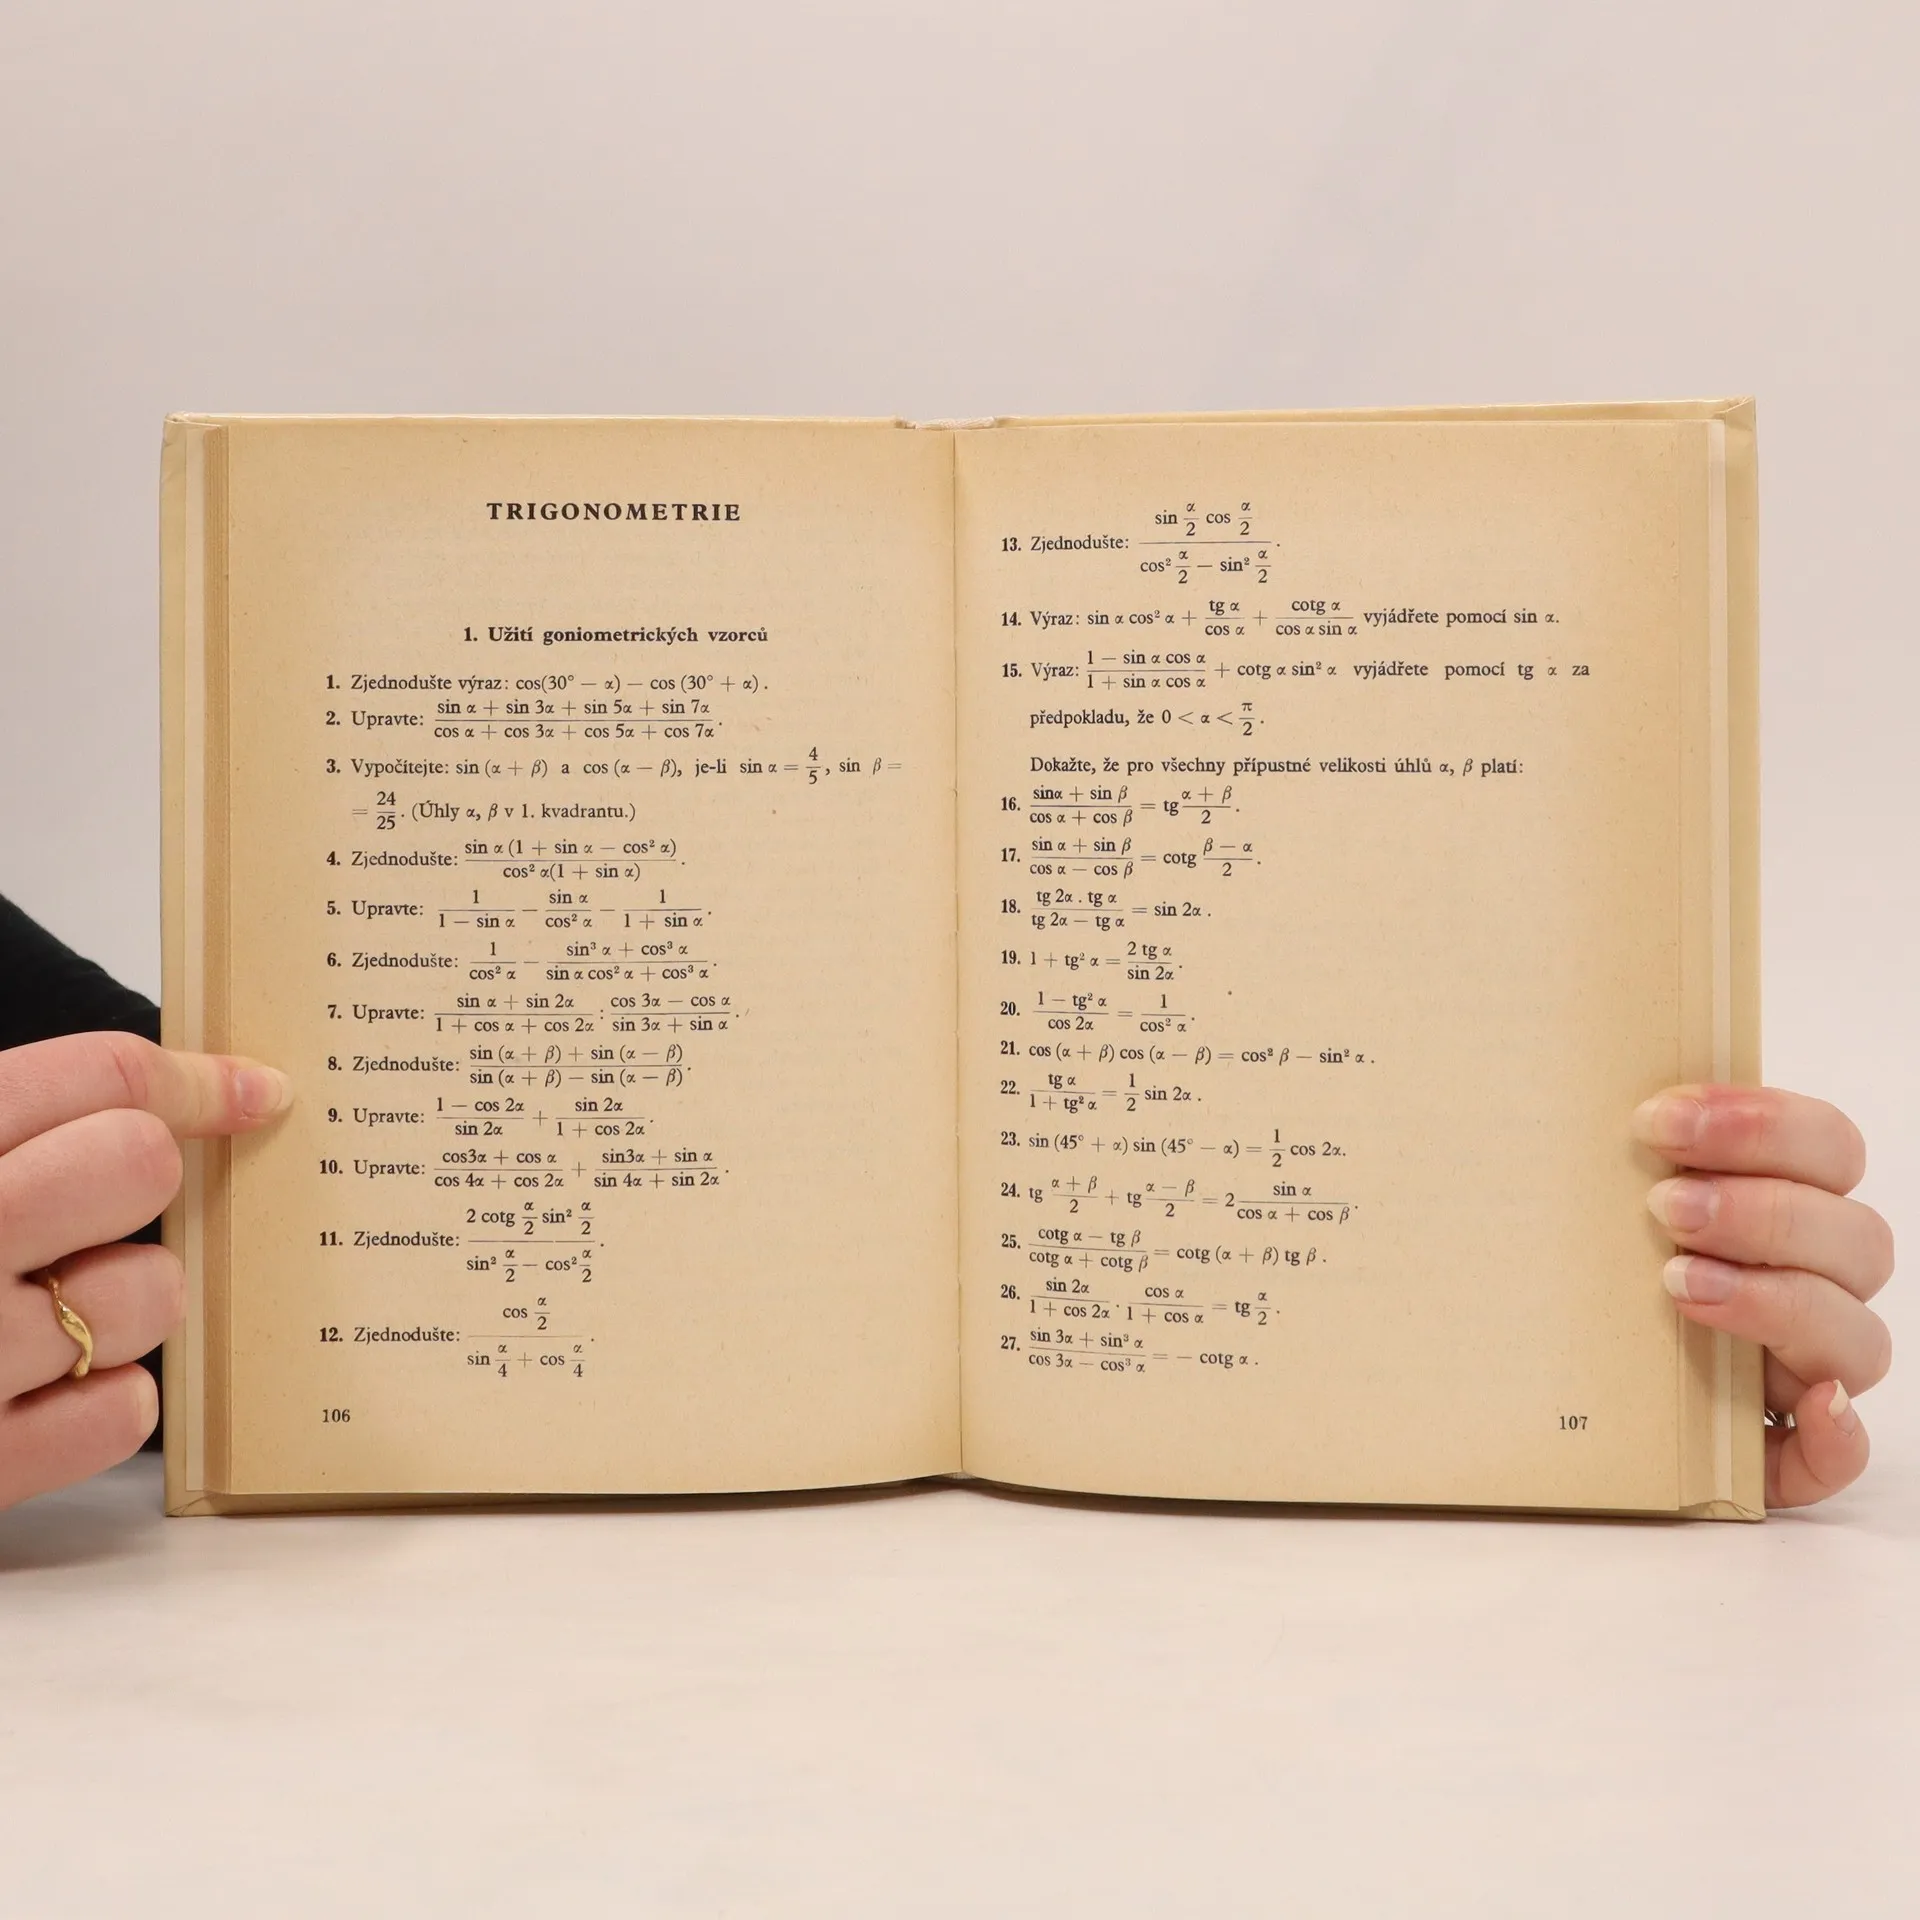 TRIGONOMETRIE
1. Užití goniometrických vzorců
1. Zjednodušte výraz: cos(30° — α) — cos (30° + α) .
2. Upravte: (sin α + sin 3α + sin 5α + sin 7α)/(cos α + cos 3α + cos 5α + cos 7α).
3. Vypočítejte: sin (α + β) a cos (α — β), je-li sin α = 4/5, sin β =
= 24/25. (Úhly α, β v 1. kvadrantu.)
4. Zjednodušte: (sin α (1 + sin α — cos² α))/(cos² α(1 + sin α)).
5. Upravte: 1/(1 — sin α) — sin α/cos² α — 1/(1 + sin α).
6. Zjednodušte: 1/cos² α — (sin³ α + cos³ α)/(sin α cos² α + cos³ α).
7. Upravte: (sin α + sin 2α)/(1 + cos α + cos 2α) : (cos 3α — cos α)/(sin 3α + sin α).
8. Zjednodušte: (sin (α + β) + sin (α — β))/(sin (α + β) — sin (α — β)).
9. Upravte: (1 — cos 2α)/(sin 2α) + (sin 2α)/(1 + cos 2α).
10. Upravte: (cos3α + cos α)/(cos 4α + cos 2α) + (sin3α + sin α)/(sin 4α + sin 2α).
11. Zjednodušte: (2 cotg α/2 sin² α/2)/(sin² α/2 — cos² α/2).
12. Zjednodušte: (cos α/2)/(sin α/4 + cos α/4).
106
13. Zjednodušte: (sin α/2 cos α/2)/(cos² α/2 — sin² α/2).
14. Výraz: sin α cos² α + tg α/cos α + cotg α/(cos α sin α) vyjádřete pomocí sin α.
15. Výraz: (1 — sin α cos α)/(1 + sin α cos α) + cotg α sin² α vyjádřete pomocí tg α za
předpokladu, že 0 < α < π/2.
Dokažte, že pro všechny přípustné velikosti úhlů α, β platí:
16. (sinα + sin β)/(cos α + cos β) = tg (α + β)/2.
17. (sin α + sin β)/(cos α — cos β) = cotg (β — α)/2.
18. (tg 2α . tg α)/(tg 2α — tg α) = sin 2α .
19. 1 + tg² α = (2 tg α)/(sin 2α).
20. (1 — tg² α)/(cos 2α) = 1/cos² α.
21. cos (α + β) cos (α — β) = cos² β — sin² α .
22. tg α/(1 + tg² α) = 1/2 sin 2α .
23. sin (45° + α) sin (45° — α) = 1/2 cos 2α.
24. tg (α + β)/2 + tg (α — β)/2 = 2 sin α/(cos α + cos β).
25. (cotg α — tg β)/(cotg α + cotg β) = cotg (α + β) tg β .
26. (sin 2α)/(1 + cos 2α) · (cos α)/(1 + cos α) = tg α/2.
27. (sin 3α + sin³ α)/(cos 3α — cos³ α) = — cotg α .
107